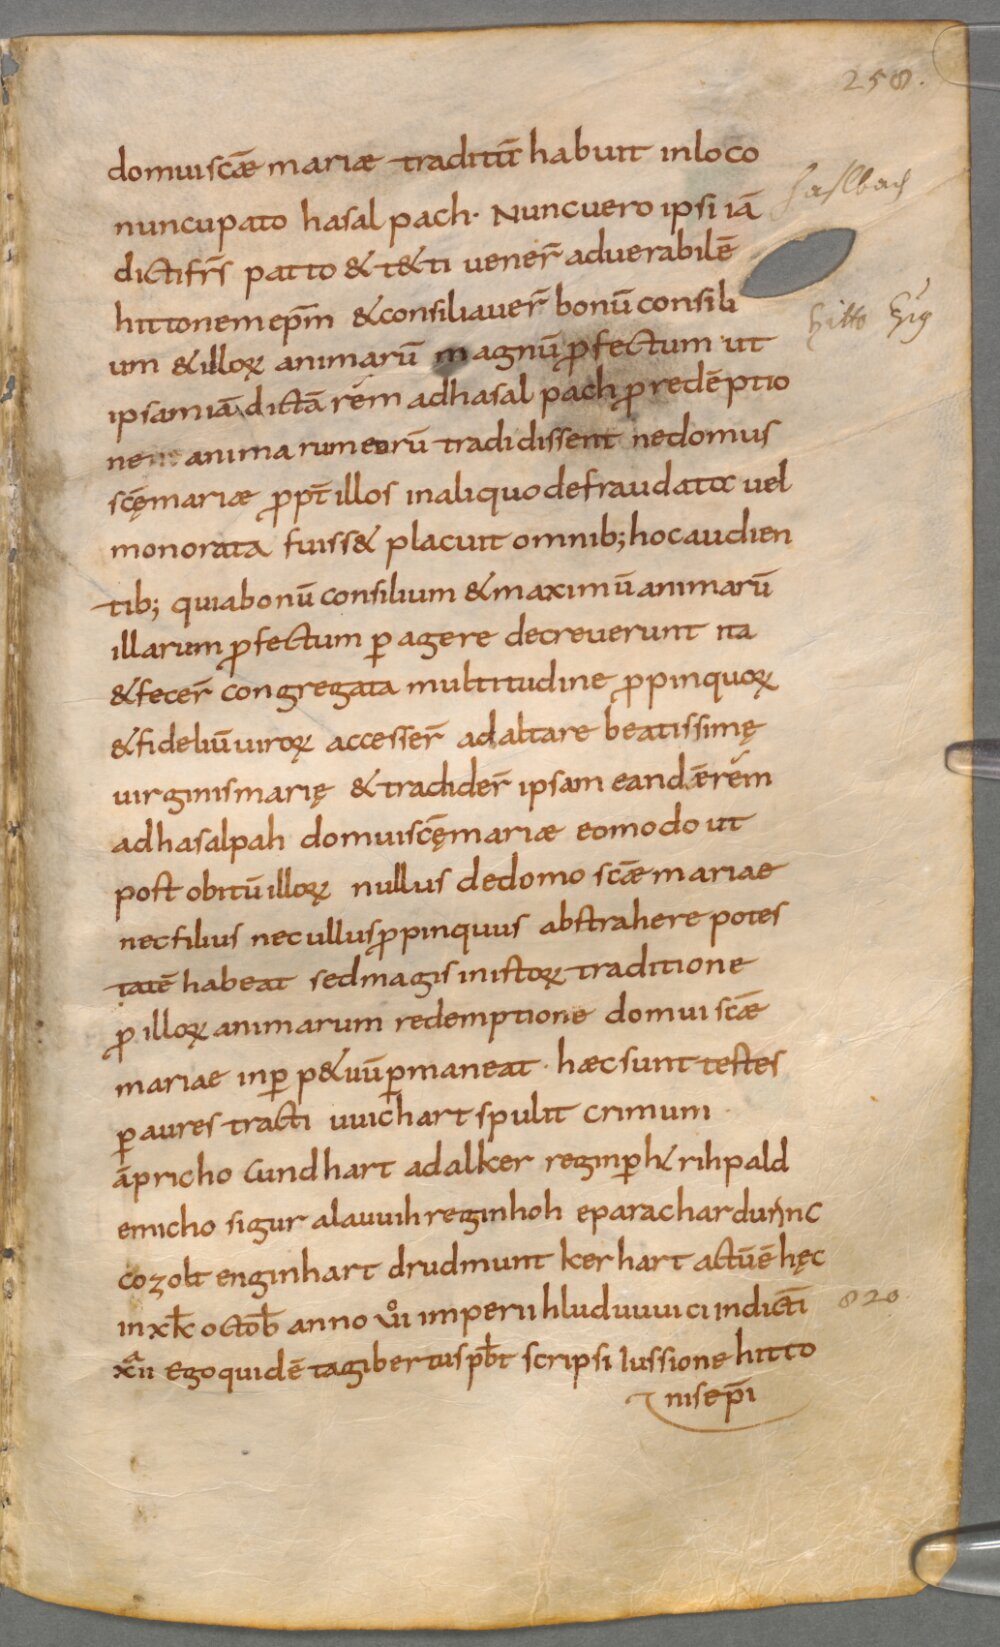 258.
domui scǣ mariæ traditū habuit in loco
haslbach
nuncupato hasalpach· Nunc uero ipsi iā
dicti fr̄s patto & t&ti uener̄ ad uerabilē
hittonem ep̄m & consiliauer̄ bonū consili
hitto
um & illoꝝ animarū magnū ꝓfectum ut
ipsam iā dictā rém ad hasalpach ꝓ redēptio
ne animarum eorū tradidissent ne domus
scę̄ mariæ ꝓpt̄ illos in aliquo defraudata uel
monorata fuiss& placuit omnib; hoc audien
tib; quia bonū consilium & maximū animarū
illarum ꝓfectum ꝑagere decreuerunt ita
& fecer̄ congregata multitudine ꝓpinquoꝝ
& fideliū uiroꝝ accesser̄ ad altare beatissimę
uirginis marię & tradider̄ ipsam eandē rém
ad hasalpah domui scę̄ mariæ eo modo ut
post obitū illoꝝ nullus de domo scǣ mariae
nec filius nec ullus ꝓpinquus abstrahere potes
tatē habeat sed magis in istoꝝ traditione
ꝓ illoꝝ animarum redemptione domui scǣ
mariae in ꝑp&uū ꝑmaneat· hæc sunt testes
ꝑ aures tracti uuichart spulit crimuni
āpricho Cundhart adalker reginꝑht rihpald
emicho sigur alauuih reginhoh eparachar durinc
cozolt enginhart drudmunt kerhart actū ē hęc
in xk̄ octob̄ anno vii imperii hluduuuici indictī
820
xiiii Ego quidē tagibertus pb̄t scripsi iussione hitto
nis ep̄i